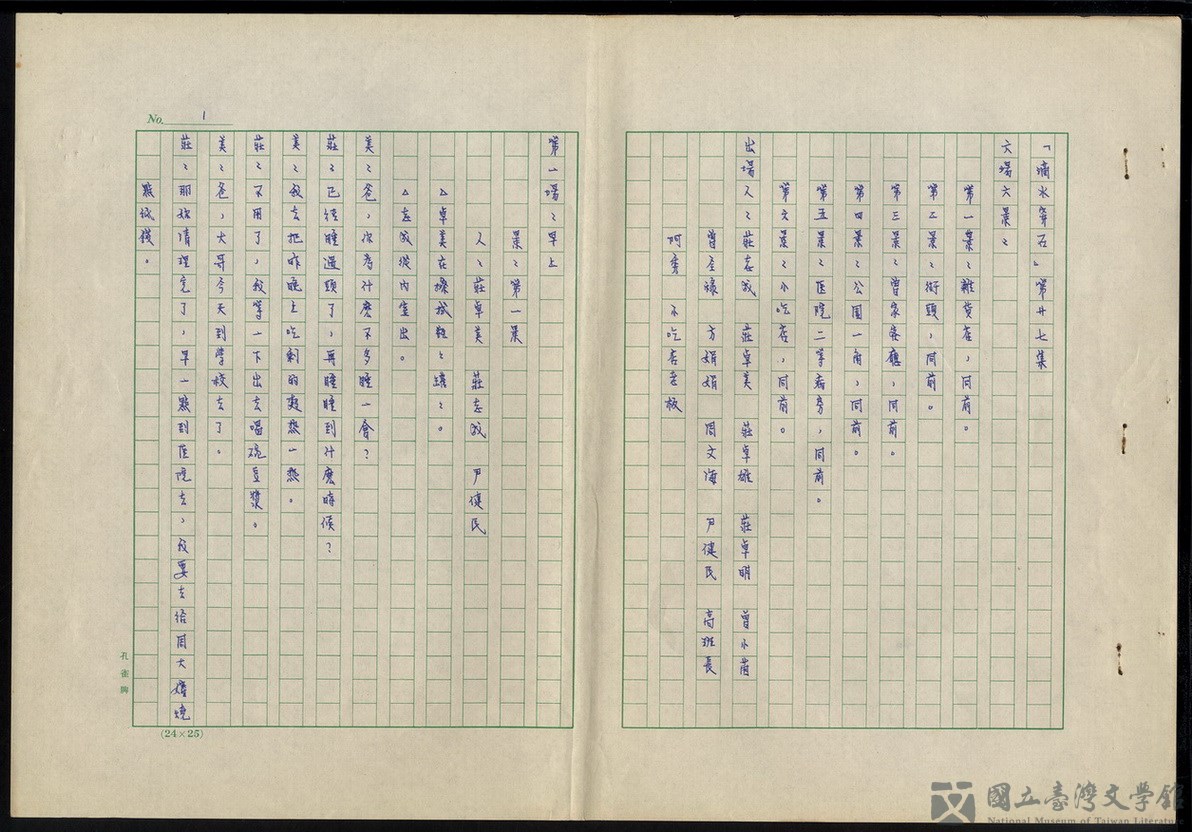 「滴水穿石」第廿七集
六場六景:
第一景:雜貨店,同前。
第二景:街頭,同前。
第三景:曾家客廳,同前。
第四景:公園一角,同前。
第五景:医院二等病房,同前。
第六景:小吃店,同前。
出場人:莊志成 莊卓美 莊卓雄 莊卓明 曾小茵
曾 方娟娟 周文海 尹健民 高班長
阿秀 小吃店老板
No. 1
第一場:早上
景:第一景
人:莊卓美 莊志成 尹健民
△卓美在擦拭粒粒罐罐。
△志成從內室出。
美:爸,你為什麼不多睡一會?
莊:已经睡過頭了,再睡睡到什麼時候?
美:我去把昨晚上吃剩的爽熱一熱。
莊:不用了,我等一下出去喝碗豆漿。
美:爸,大哥今天到學校去了。
莊:那妳清理完了,早一點到医院去,我要去给周大嬸燒
點紙錢。
孔雀牌
(24×25)
國立臺灣文學館
National Museum of Taiwan Literature